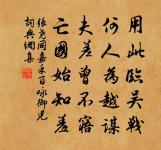 用此臨吳戰
何人為越謀
夫差曾不寤
亡國始知羞
張堯同嘉禾百詠御兒
詞典網集